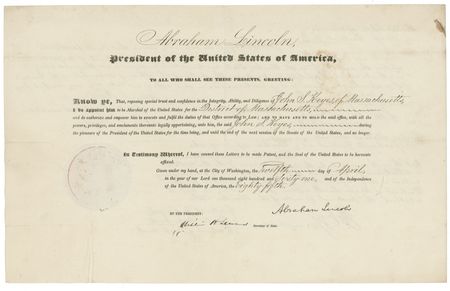 Abraham Lincoln,
President of the United States of America,
TO ALL WHO SHALL SEE THESE PRESENTS, GREETING:
Know ye, That, reposing special trust and confidence in the Integrity, Ability, and Diligence of John S. Keyes, of Massachusetts,
I do Appoint him to be Marshal of the United States for the District of Massachusetts,
and do authorize and empower him to execute and fulfil the duties of that Office according to Law; AND TO HAVE AND TO HOLD the said office, with all the
powers, privileges, and emoluments thereunto legally appertaining, unto him, the said John S. Keyes, during
the pleasure of the President of the United States for the time being, and until the end of the next session of the Senate of the United States, and no longer.
In Testimony Whereof, I have caused these Letters to be made Patent, and the Seal of the United States to be hereunto
affixed.
Given under my hand, at the City of Washington, the Twelfth day of April,
in the year of our Lord one thousand eight hundred and Sixty one, and of the Independence
of the United States of America, the Eighty fifth.
Abraham Lincoln
BY THE PRESIDENT:
Secretary of State.